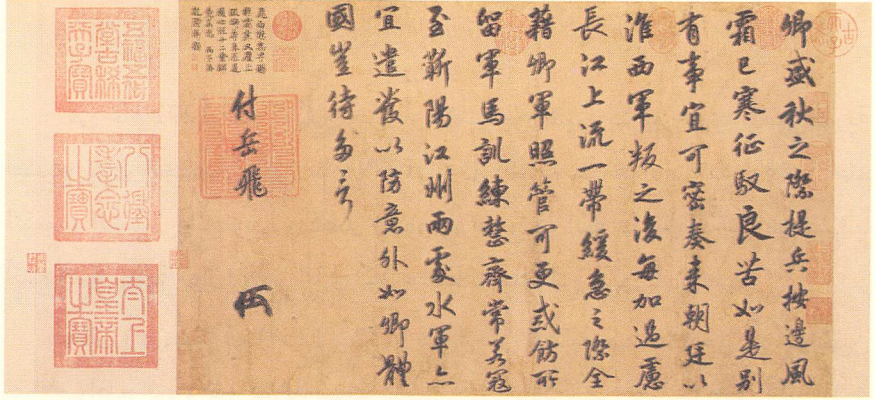 卿盛秋之際提兵按邊風
霜已寒征馭良苦如是別
有事宜可密奏來朝廷以
淮西軍叛之後每加過慮
長江上流一帶緩急之際全
藉卿軍照管可更戒飭所
留軍馬訓練整齊常若寇
至蘄陽江州兩處水軍亦
宜遣發以防意外如卿體
國豈待多言
付岳飛
五福五代堂古稀天子寶
八徵耄念之寶
太上皇帝之寶